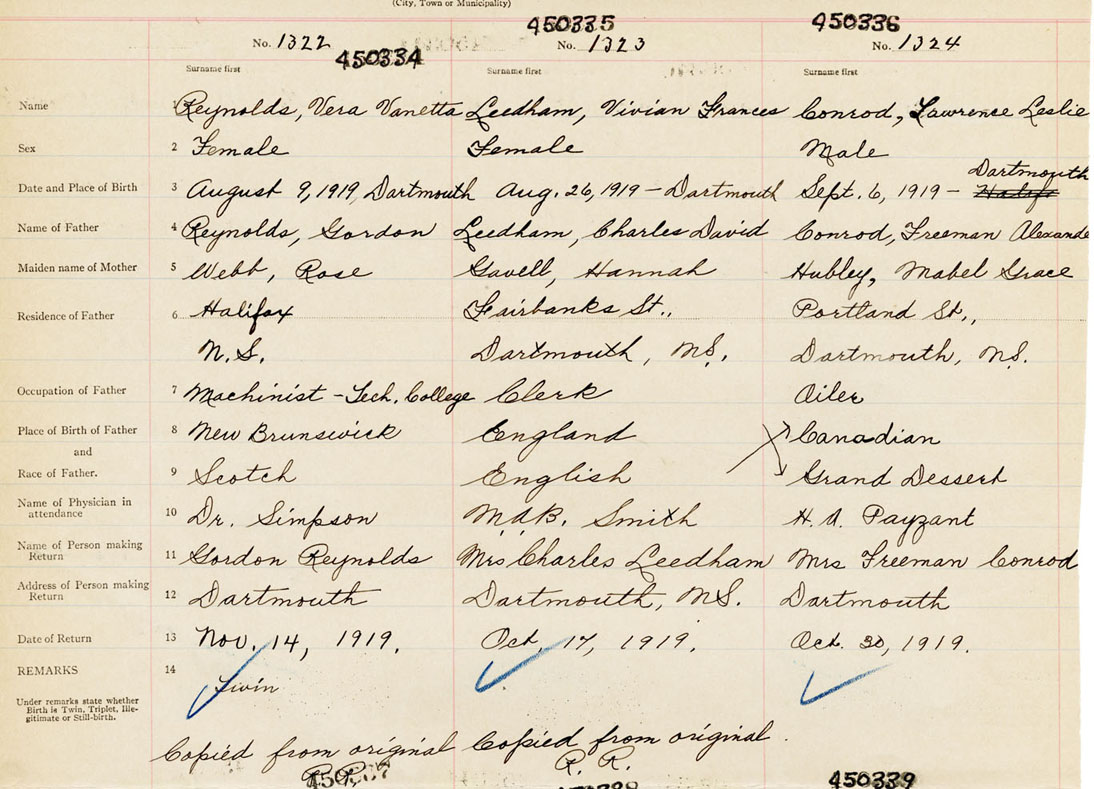 (City, Town or Municipality)
450335 450336
No. 1322 No. 1323 No. 1324
450334
Surname first Surname first Surname first
Name 1 Reynolds, Vera Vanetta Leedham, Vivian Frances Conrod, Lawrence Leslie
Sex 2 Female Female Male
Dartmouth
Date and Place of Birth 3 August 9, 1919, Dartmouth Aug. 26, 1919 – Dartmouth Sept. 6, 1919 – Halifx
Name of Father 4 Reynolds, Gordon Leedham, Charles David Conrod, Freeman Alexande
Maiden name of Mother 5 Webb, Rose Gavell, Hannah Hubley, Mabel Grace
Residence of Father 6 Halifax Fairbanks St., Portland St.,
N.S. Dartmouth, N.S. Dartmouth, N.S.
Occupation of Father 7 Machinist – Tech. College Clerk Oiler
Place of Birth of Father 8 New Brunswick England Canadian
and
Race of Father. 9 Scotch English Grand Dessert
Name of Physician in
attendance 10 Dr. Simpson M.A.B. Smith H. A. Payzant
Name of Person making
Return 11 Gordon Reynolds Mrs Charles Leedham Mrs Freeman Conrod
Address of Person making
Return 12 Dartmouth Dartmouth, N.S. Dartmouth
Date of Return 13 Nov. 14, 1919. Oct. 17, 1919. Oct. 30, 1919.
REMARKS 14 Twin
Under remarks state whether
Birth is Twin, Triplet, Ille-
gitimate or Still-birth.
Copied from original Copied from original.
R. R. R. R.
450339